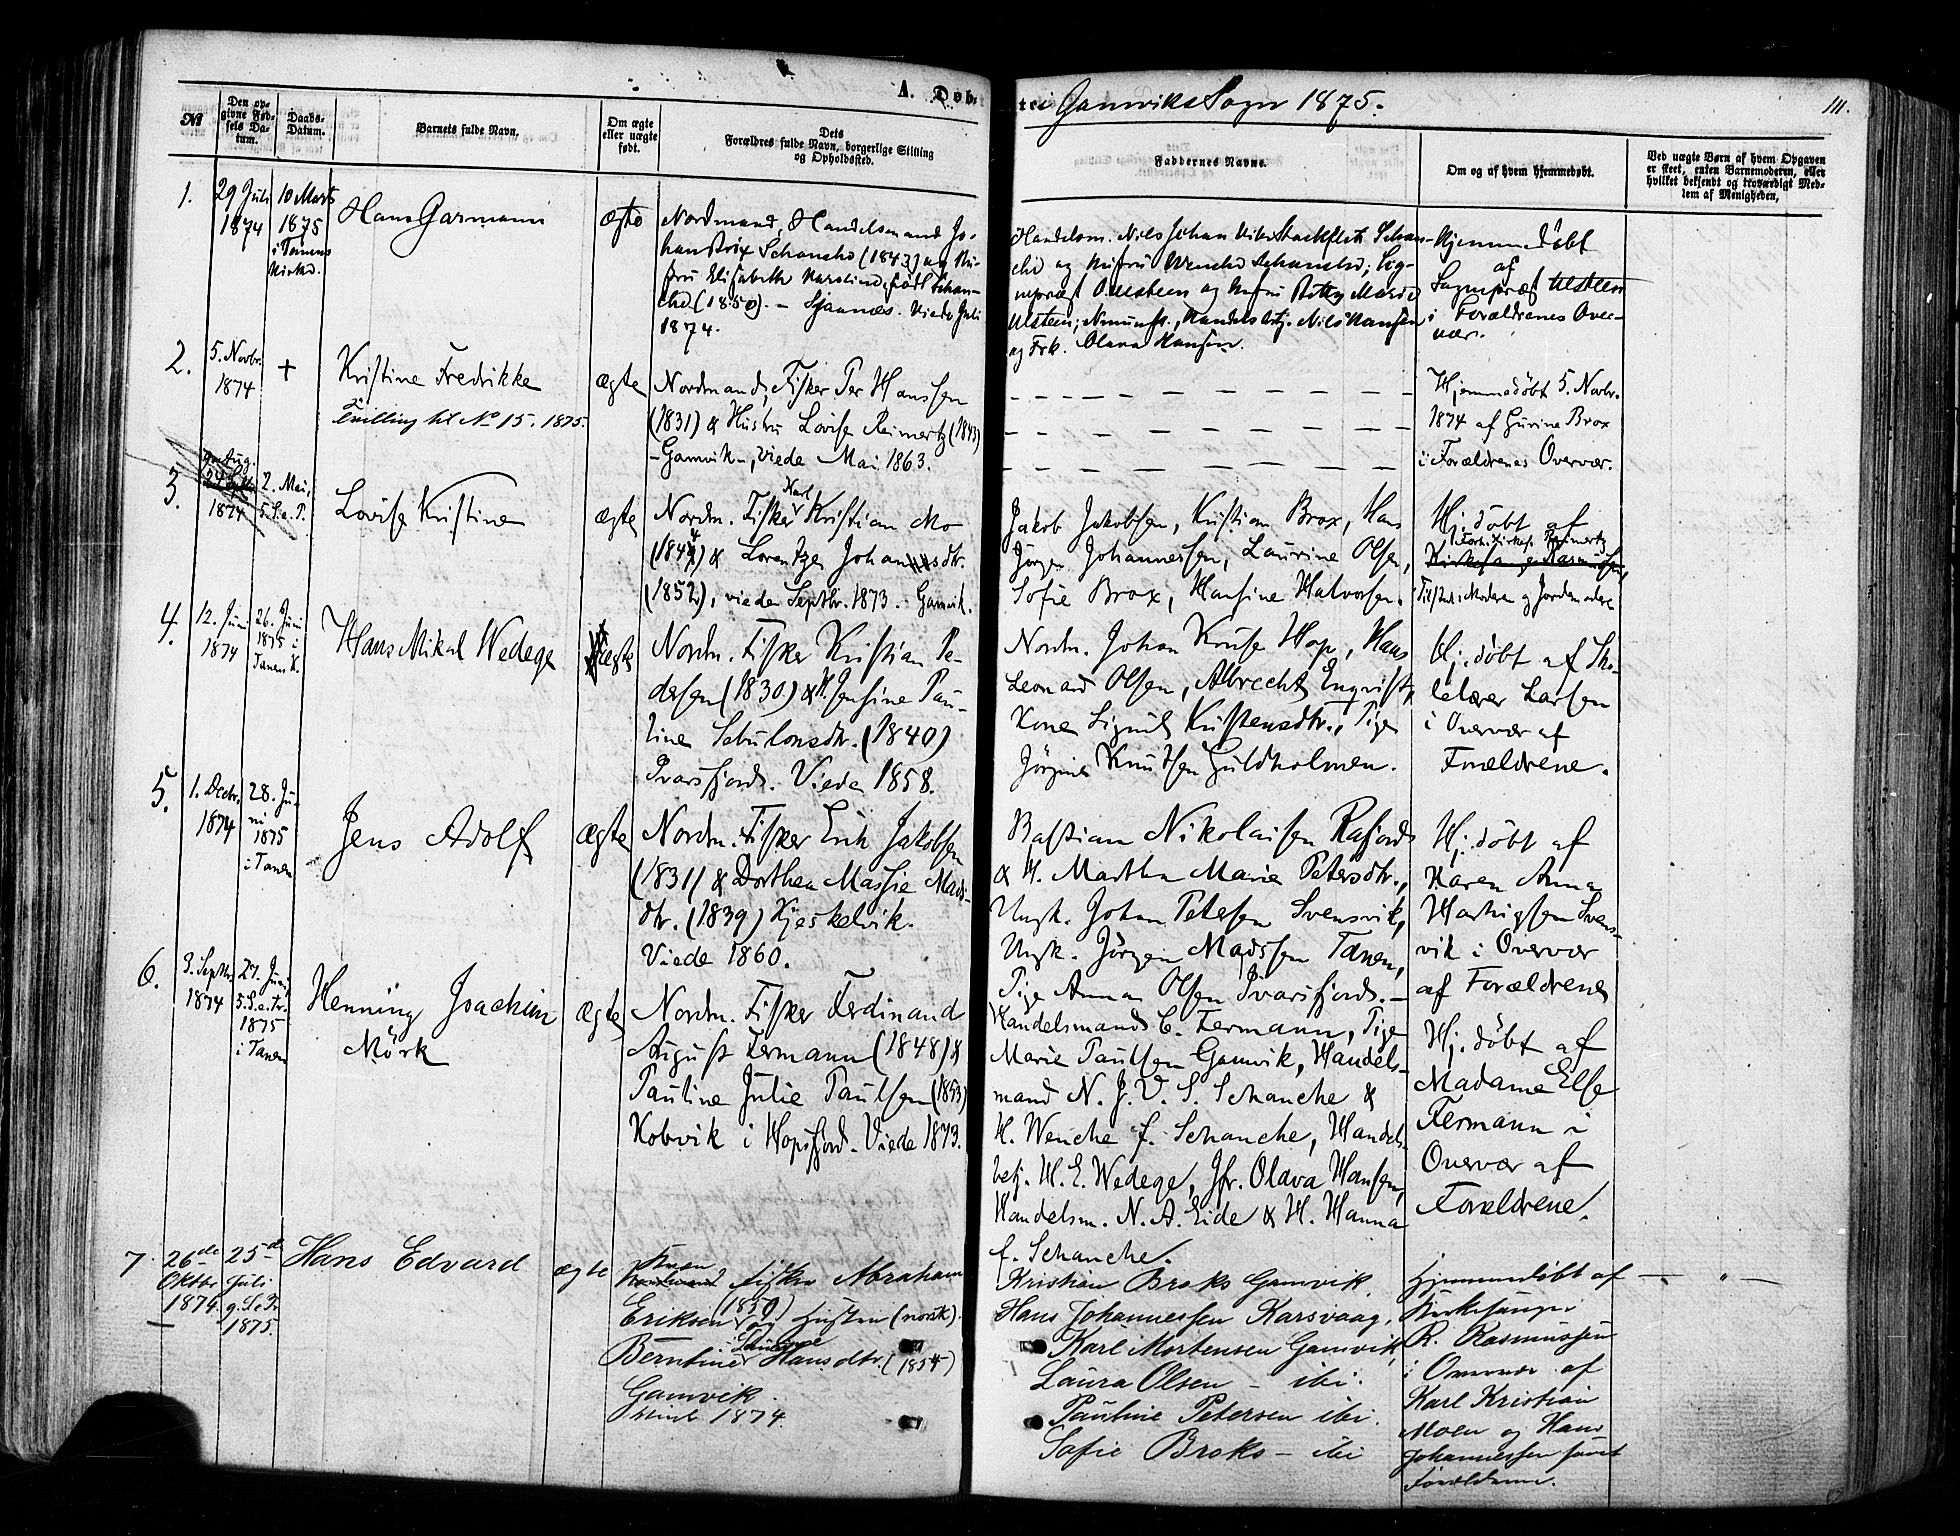 A. Døbte i Gamviks Sogn 1875.
111.
No
Den op-
givne Fød-
sels Da-
tum.
Daabs-
Datum.
Barnets fulde Navn.
Om ægte
eller uægte
født.
Dets
Forældres fulde Navn, borgerlige Stilling
og Opholdssted.
Faddernes Navne.
Om og af hvem hjemmedøbt.
Ved uægte Børn af hvem Opgaven
er skeet, enten Barnemoderen, eller
hvilket bekjendt og troværdigt Med-
lem af Menigheden,
1.
29 Juli
1874
10 Marts
1875
i Tanens
Kirke.
Hans Garmann
ægte
Nordmand, Handelsmand Jo-
Schanche (1843) og Hu-
stru Elisabeth Karoline, født Schan-
che (1850). – Sjaanæs. Viede Juli
1874.
Handelsm. Nils Johan Stockfleth Schan-
che og Hustru Wenche Schanche; Sog-
nepræst Ulsteen og Hustru Betty Marie
Ulsteen; Handelsbetj. Nils Hansen
og Frk. Olava Hansen.
Hjemmedøbt
af
Sognepræst Ulsteen
i Forældrenes Over-
vær.
2.
5. Novbr.
1874
+
Kristine Fredrikke
Tvilling til No 15. 1875.
ægte
Nordmand, Fisker Per Hanssen
(1831) & Hustru Lovise Reimertz (1843)
– Gamvik –, viede Mai 1863.
– – – – – – – – –
– – – – – – – – –
– – – – – – – – –
Hjemmedøbt 5. Novbr.
1874 af Gurine Brox
i Forældrenes Overvær.
3.
Aug.
1874
2. Mai,
5. S. e. P.
Lovise Kristine
ægte
Nordm. Fisker Karl Kristian Mo
(1844) & Lorentze Johannsdtr.
(1852), viede Septbr. 1873. – Gamvik.
Jakob Jakobsen, Kristian Brox, Hans
Jørgen Johannessen, Laurine Olsen,
Sofie Brox, Hansine Halvorsen.
Hj. døbt af
Reimertz
Kirkesanger Rasmussen,
Tilsted. Moderen og Jordemoderen
4.
12. Juni
1874
26. Juni
1875 i
Tanen K.
Hans Mikal Wedege
ægte
Nordm. Fisker Kristian Pe-
dersen (1830) & H. Jensine Pau-
line Sebulonsdtr. (1840)
Ivarsfjord. Viede 1858.
Nordm. Johan Kruse Hop, Hans
Leonard Olsen, Albrecht Enqvist,
Kone Sigrid Kristensdtr., Pige
Jørgine Knutsen Guldholmen.
Hj. døbt af Sko-
lelærer Larsen
i Overvær af
Forældrene.
5.
1. Decbr.
1874
28. Ju-
ni
1875
i Tanen
Jens Adolf
ægte
Nordm. Fisker Erik Jakobsen
(1831) & Dorthea Massie Mads-
dtr. (1839) Kjeskelvik.
Viede 1860.
Bastian Nikolaisen Rafjord
& H. Martha Marie Petersdtr.,
Ungk. Johan Petersen Svensvik,
Ungk. Jørgen Madssen Tanen,
Pige Anna Olsen Ivarsfjord. –
Hj. døbt af
Karen Anna
Hartvigsen Svens-
vik i Overvær
af Forældrene
6.
3. Septbr.
1874
27. Juni
5. S. e. Tr.
1875
i Tanen
Henning Joachim
Mörk
ægte
Nordm. Fisker Ferdinand
August Fermann (1848) &
Pauline Julie Paulsen (1853)
Kobvik i Hopsfjord. Viede 1873.
Handelsmand C. Fermann, Pige
Marie Paulsen Gamvik, Handels-
mand N. J. V. S. Schanche &
H. Wenche f. Schanche, Handels-
betj. H. E. Wedege, Jfr. Olava Hansen,
Handelsm. N. A. Eide & H. Hanna
f. Schanche.
Hj. døbt af
Madame Else
Fermann i
Overvær af
Forældrene.
7.
26de
Oktbr
1874.
25de
Juli
9. S. e Tr
1875.
Hans Edvard
ægte
Kvæn
Nordmand Fisker Abraham
Eriksen (1850) og Hustru (norsk)
Berntine Hansdtr. (1854)
Gamvik.
viede 1874.
Kristian Broks Gamvik.
Hans Johannessen Karsvaag,
Karl Mortensen Gamvik,
Laura Olsen – ibi.
Pauline Petersen ibi.
Sofie Broks – ibi
Hjemmedøbt af
Kirkesanger
R. Rasmussen
i Overvær af
Karl Kristian
Moen og Hans
Johannessen samt
Forældrene.
– " –